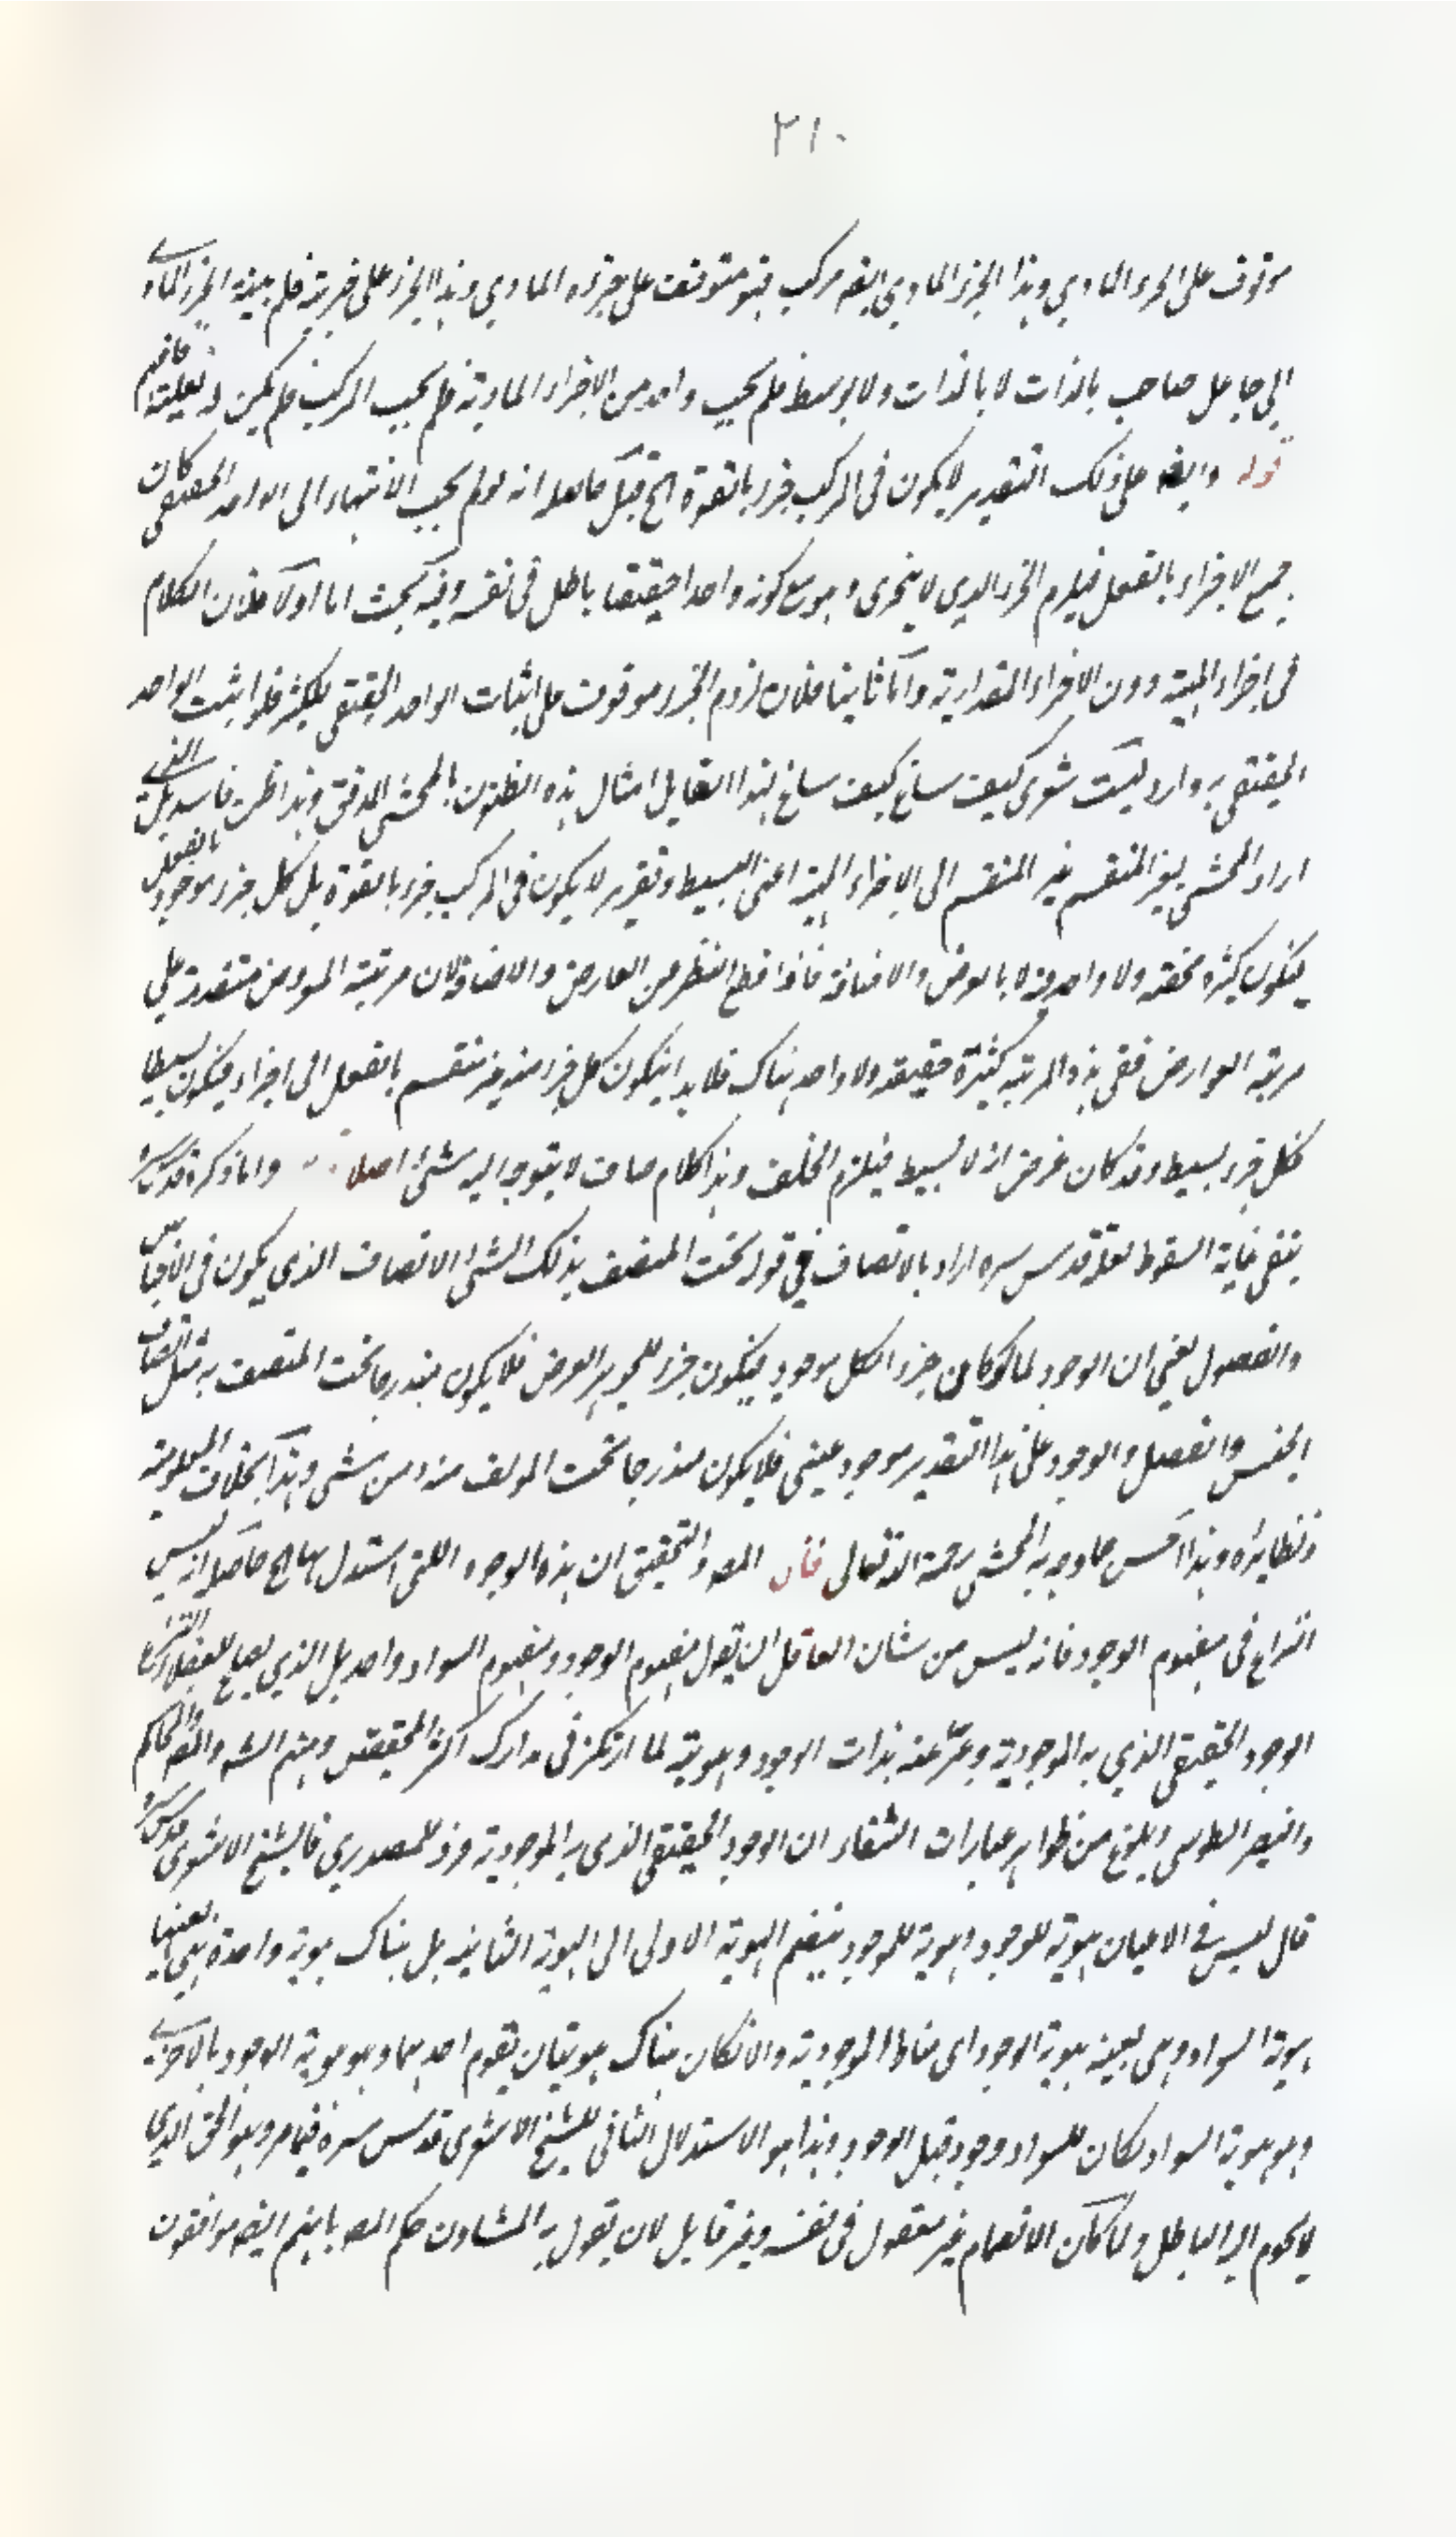 ٢١٠
موقوف على الجزء المادي وهذا الجزء المادي ايضه مركب فهو متوقف على جزئه المادي وهذا الجزء على جزئه فلم ينته الجزء المادي
الى جاعل صاحب بالذات لا بالذات ولا بوسط فلم يجب واحد من الاجزاء المادية فلم يجب المركب فلم يكن له فعلية فافهم
قوله وايضه على ذلك التقدير لا يكون في المركب جزء بالقوة الخ قيل حاصله انه لو لم يجب الانتهاء الى الواحد الحقيقي كان
جميع الاجزاء بالفعل فيلزم الجزء الذي لا يتجزى وهو مع كونه واحدا حقيقيا باطل في نفسه وفيه بحث اما اولا فلان الكلام
في اجزاء المهية دون الاجزاء المقدارية واما ثانيا فلان لزوم الجزء موقوف على اثبات الواحد الحقيقي للكثير فلو اثبت الواحد
الحقيقي به دار ليت شعري كيف ساغ كيف ساغ لهذا القايل امثال هذه الظنون بالمحشي المدقق وهذا ظن فاسد بل الذي
اراد المحشي بغير المنقسم غير المنقسم الى الاجزاء المهية اعني البسيط وتقريره لا يكون في المركب جزء بالقوة بل كل جزء موجود بالفعل
فيكون كثرة محضه ولا واحد فيه لا بالعرض والاضافة فاذا قطع النظر عن العارض والاضافة لان مرتبة المعروض متقدمة على
مرتبة العوارض ففي هذه المرتبة كثرة حقيقة ولا واحد هناك فلا بد ان يكون كل جزء منه غير منقسم بالفعل الى اجزاء فيكون بسيطا
فكل جزء بسيط وقد كان فرض انه لا بسيط فيلزم الخلف وهذا كلام صاف لا يتوجه اليه شئ اصلا واما ذكره قدس سره
ففي غاية السقوط لعله قدس سره اراد بالاتصاف في قوله تحت المتصف بذلك الشئ الاتصاف الذي يكون في الاجناس
والفصول يعني ان الوجود لما لو كان جزء الكل موجود فيكون جزء للجوهر العرض فلا يكون مندرجا تحت المتصف به مثل اتصاف
الجنس والفصل والوجود على هذا التقدير موجود عيني فلا يكون مندرجا تحت المولف منه ومن شئ وهذا بخلاف المعلومية
ونظايره وهذا احسن ما وجه به المحشي رحمة الله تعالى قال المصه والتحقيق ان هذه الوجوه اللتي استدل بها الخ حاصله انه ليس
النزاع في مفهوم الوجود فانه ليس من شان العاقل ان يقول مفهوم الوجود ومفهوم السواد واحد بل الذي يصلح
الوجود الحقيقي الذي به الموجودية وعبر عنه بذات الوجود وهوية لما ارتكز في مدارك اكثر المحققين ومنهم الشه والمصه والحاكم
والنصير الطوسي ويلوح من ظواهر عبارات الشفاء ان الوجود الحقيقي الذي به الموجودية فرد للمصدري فالشيخ الاشعري قدس سره
قال ليس في الاعيان هوية للوجود وهوية للموجود ينضم الهوية الاولى الى الهوية الثانية بل هناك هوية واحدة هي بعينها
هوية السواد وهي بعينه هوية الوجود اي مناط الموجودية والا لكان هناك هويتان يقوم احدهما وهو هوية الوجود بالاخرى
وهو هوية السواد لكان للسواد وجود قبل الوجود وهذا هو الاستدلال الثاني للشيخ الاشعري قدس سره فيما مر وهو الحق الذي
لا يحوم اليه الباطل ولما كان الانضمام غير معقول في نفسه وغير قابل لان يقول به المشاون حكم المصه بانهم ايضه موافقون